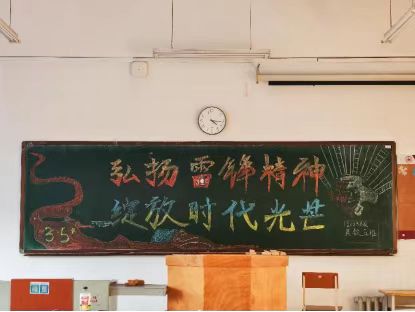 弘扬雷锋精神
绽放时代光芒
3·5